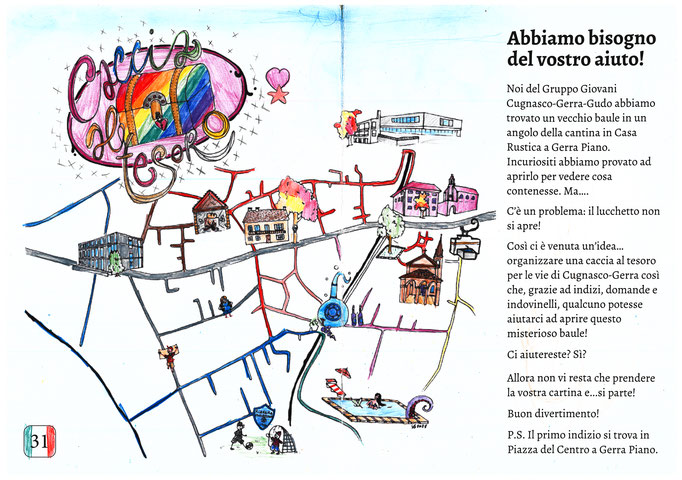 Caccia
al
tesoro
Abbiamo bisogno
del vostro aiuto!
Noi del Gruppo Giovani
Cugnasco-Gerra-Gudo abbiamo
trovato un vecchio baule in un
angolo della cantina in Casa
Rustica a Gerra Piano.
Incuriositi abbiamo provato ad
aprirlo per vedere cosa
contenesse. Ma....
C'è un problema: il lucchetto non
si apre!
Così ci è venuta un'idea...
organizzare una caccia al tesoro
per le vie di Cugnasco-Gerra così
che, grazie ad indizi, domande e
indovinelli, qualcuno potesse
aiutarci ad aprire questo
misterioso baule!
Ci aiutereste? Sì?
Allora non vi resta che prendere
la vostra cartina e...si parte!
Buon divertimento!
P.S. Il primo indizio si trova in
Piazza del Centro a Gerra Piano.
31